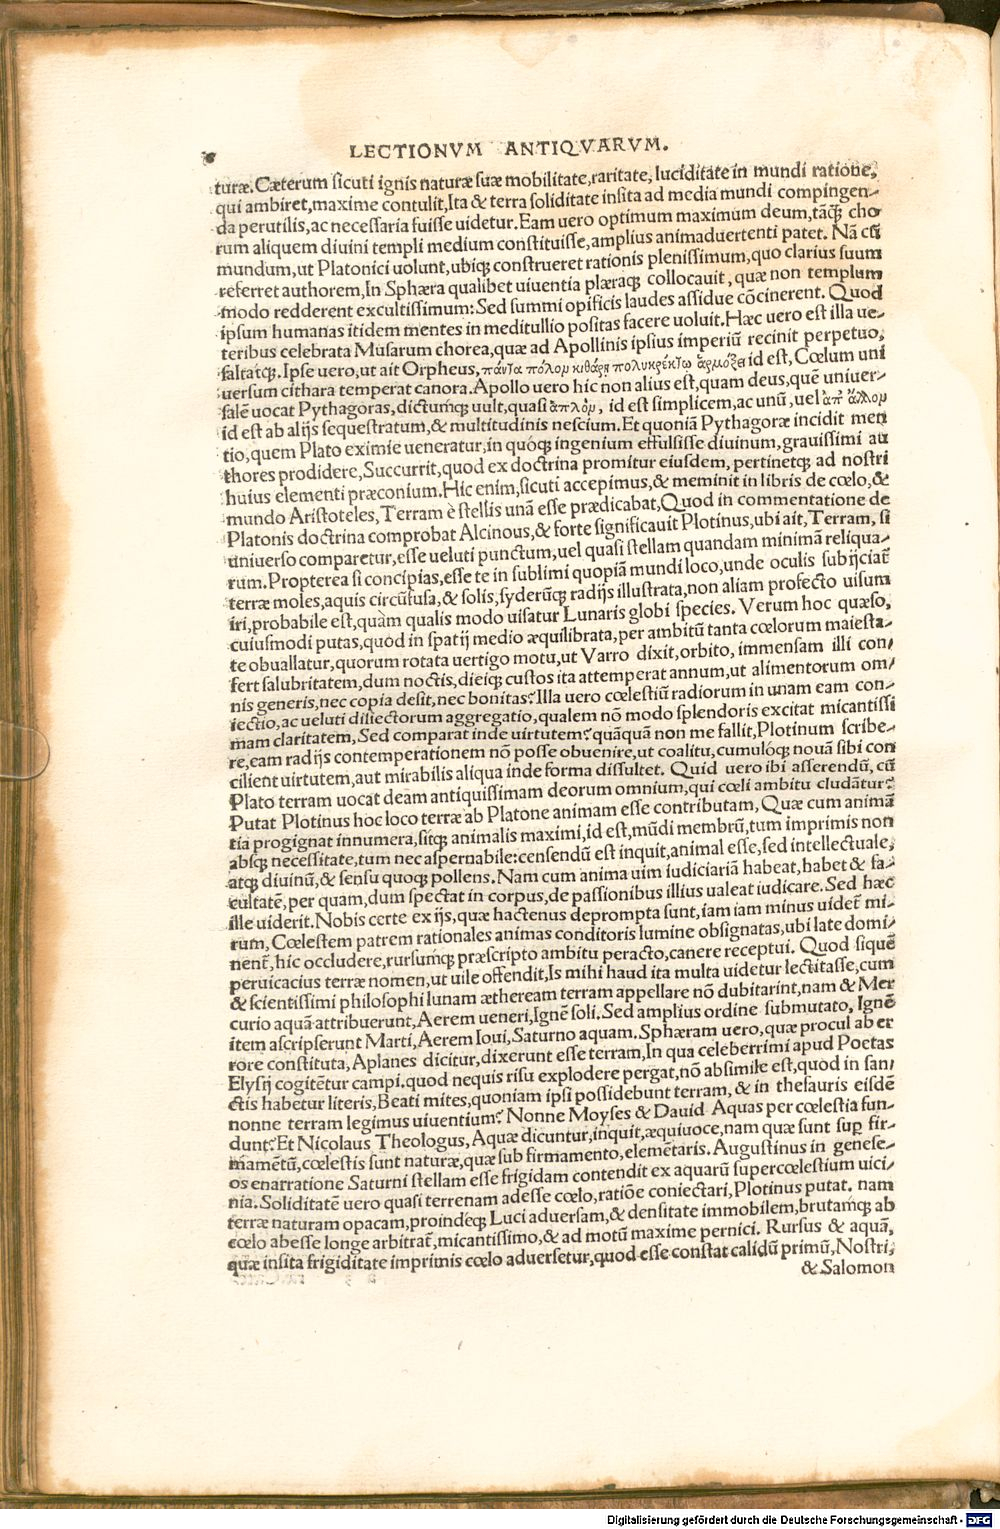 LECTIONVM ANTIQVARVM.
turæ. Cæterum sicuti ignis naturæ suæ mobilitate, raritate, luciditate in mundi ratione,
qui ambiret, maxime contulit, Ita & terra soliditate insita ad media mundi compingen-
da perutilis, ac necessaria fuisse uidetur. Eam uero optimum maximum deum, tãq̃ cho
rum aliquem diuini templi medium constituisse, amplius animaduertenti patet. Nã cũ
mundum, ut Platonici uolunt, ubiq; construeret rationis plenissimum, quo clarius suum
referret authorem, In Sphæra qualibet uiuentia plæraq; collocauit, quæ non templum
modo redderent excultissimum: Sed summi opificis laudes assidue cõcinerent. Quod
ipsum humanas itidem mentes in meditullio positas facere uoluit. Hæc uero est illa ue-
teribus celebrata Musarum chorea, quæ ad Apollinis ipsius imperiũ recinit perpetuo,
saltatq;. Ipse uero, ut ait Orpheus, πάντα πόλομ κιθάρῃ πολυκρέκτῳ ἁρμόζει id est, Cœlum uni
uersum cithara temperat canora. Apollo uero hic non alius est, quam deus, quẽ uniuer-
salẽ uocat Pythagoras, dictumq; uult, quasi ἁπλόμ, id est simplicem, ac unũ, uel ἀπ ἄλλομ
id est ab alijs sequestratum, & multitudinis nescium. Et quoniã Pythagoræ incidit men
tio, quem Plato eximie ueneratur, in quóq; ingenium effulsisse diuinum, grauissimi au
thores prodidere, Succurrit, quod ex doctrina promitur eiusdem, pertinetq; ad nostri
huius elementi præconium. Hic enim, sicuti accepimus, & meminit in libris de cœlo, &
mundo Aristoteles, Terram è stellis unã esse prædicabat, Quod in commentatione de
Platonis doctrina comprobat Alcinous, & forte significauit Plotinus, ubi ait, Terram, si
uniuerso comparetur, esse ueluti punctum, uel quasi stellam quandam minimã reliqua-
rum. Propterea si concipias, esse te in sublimi quopiã mundi loco, unde oculis subijciat̃
terræ moles, aquis circũfusa, & solis, syderũq; radijs illustrata, non aliam profecto uisum
iri, probabile est, quàm qualis modo uisatur Lunaris globi species. Verum hoc quæso,
cuiusmodi putas, quòd in spatij medio æquilibrata, per ambitũ tanta cœlorum maiesta-
te obuallatur, quorum rotata uertigo motu, ut Varro dixit, orbito, immensam illi con-
fert salubritatem, dum noctis, dieiq; custos ita attemperat annum, ut alimentorum om-
nis generis, nec copia desit, nec bonitas? Illa uero cœlestiũ radiorum in unam eam con-
iectio, ac ueluti disiectorum aggregatio, qualem nõ modo splendoris excitat micantissi
mam claritatem, Sed comparat inde uirtutem? quãquã non me fallit, Plotinum scribe-
re, eam radijs contemperationem nõ posse obuenire, ut coalitu, cumulóq; nouã sibi con
cilient uirtutem, aut mirabilis aliqua inde forma dissultet. Quid uero ibi asserendũ, cũ
Plato terram uocat deam antiquissimam deorum omnium, qui cœli ambitu cludãtur?
Putat Plotinus hoc loco terræ ab Platone animam esse contributam, Quæ cum animã
tia progignat innumera, sitq; animalis maximi, id est, mũdi membrũ, tum imprimis non
absq; necessitate, tum nec aspernabile: censendũ est inquit, animal esse, sed intellectuale,
atq; diuinũ, & sensu quoq; pollens. Nam cum anima uim iudiciariã habeat, habet & fa-
cultatẽ, per quam, dum spectat in corpus, de passionibus illius ualeat iudicare. Sed hæc
ille uiderit. Nobis certe ex ijs, quæ hactenus deprompta sunt, iam iam minus uidet̃ mi-
rum, Cœlestem patrem rationales animas conditoris lumine obsignatas, ubi late domi-
nent̃, hic occludere, rursumq; præscripto ambitu peracto, canere receptui. Quod siquẽ
peruicacius terræ nomen, ut uile offendit, Is mihi haud ita multa uidetur lectitasse, cum
& scientissimi philosophi lunam ætheream terram appellare nõ dubitarint, nam & Mer
curio aquã attribuerunt, Aerem ueneri, Ignẽ soli. Sed amplius ordine submutato, Ignẽ
item ascripserunt Marti, Aerem Ioui, Saturno aquam. Sphæram uero, quæ procul ab er
rore constituta, Aplanes dicitur, dixerunt esse terram, In qua celeberrimi apud Poetas
Elysij cogitẽtur campi. quod nequis risu explodere pergat, nõ absimile est, quod in san-
ctis habetur literis, Beati mites, quoniam ipsi possidebunt terram, & in thesauris eisdẽ
nonne terram legimus uiuentium? Nonne Moyses & Dauid Aquas per cœlestia fun-
dunt? Et Nicolaus Theologus, Aquæ dicuntur, inquit, æquiuoce, nam quæ sunt sup̱ fir-
mamẽtũ, cœlestis sunt naturæ, quæ sub firmamento, elemẽtaris. Augustinus in genese-
os enarratione Saturni stellam esse frigidam contendit ex aquarũ supercœlestium uici-
nia. Soliditatẽ uero quasi terrenam adesse cœlo, ratiõe coniectari, Plotinus putat. nam
terræ naturam opacam, proindéq; Luci aduersam, & densitate immobilem, brutamq; ab
cœlo abesse longe arbitrat̃, micantissimo, & ad motũ maxime pernici. Rursus & aquã,
quæ insita frigiditate imprimis cœlo aduersetur, quod esse constat calidũ primũ, Nostri,
& Salomon
Digitalisierung gefördert durch die Deutsche Forschungsgemeinschaft - DFG